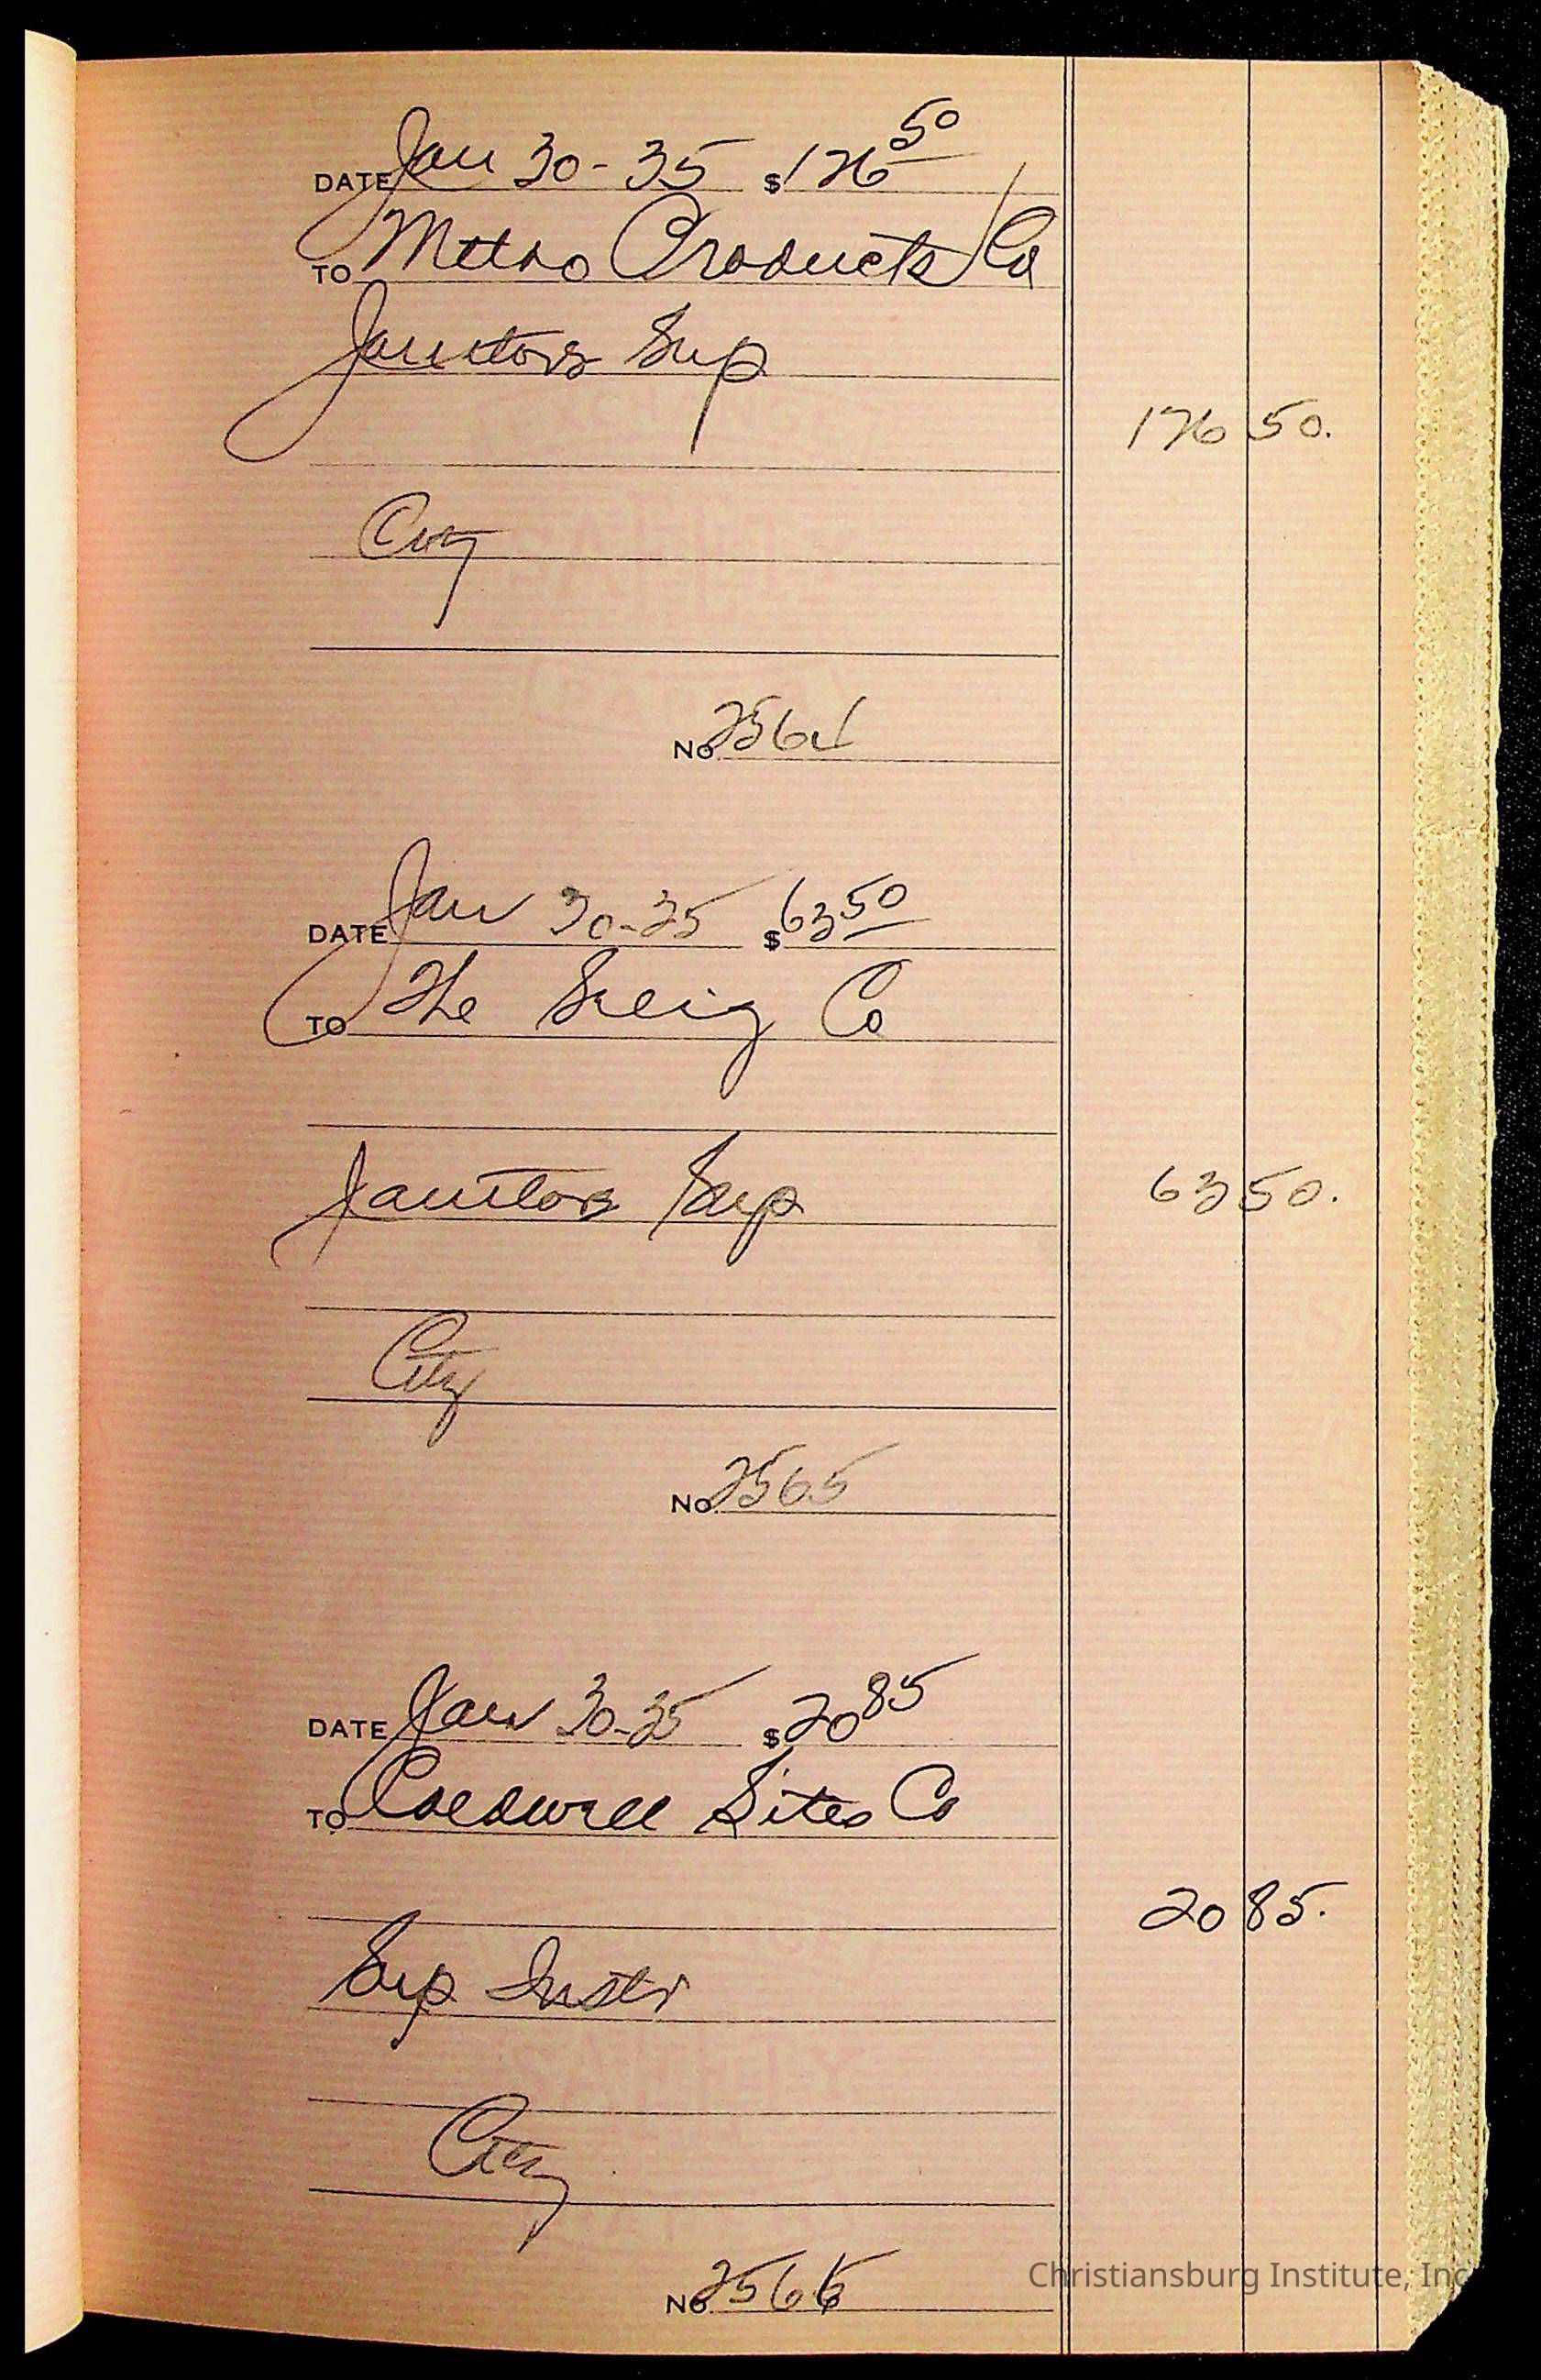 DATE Jan 30 - 35 $176 50
TO Metro Products Co
Janitors Sup
176 50.
City
No 2564
DATE Jan 30-35 $63 50
TO The Greig Co
Janitors Sup 63 50.
City
No 2565
DATE Jan 30-35 $20 85
TO Caldwell Sites Co
20 85.
Sup Instr
City
No 2566
Christiansburg Institute, Inc